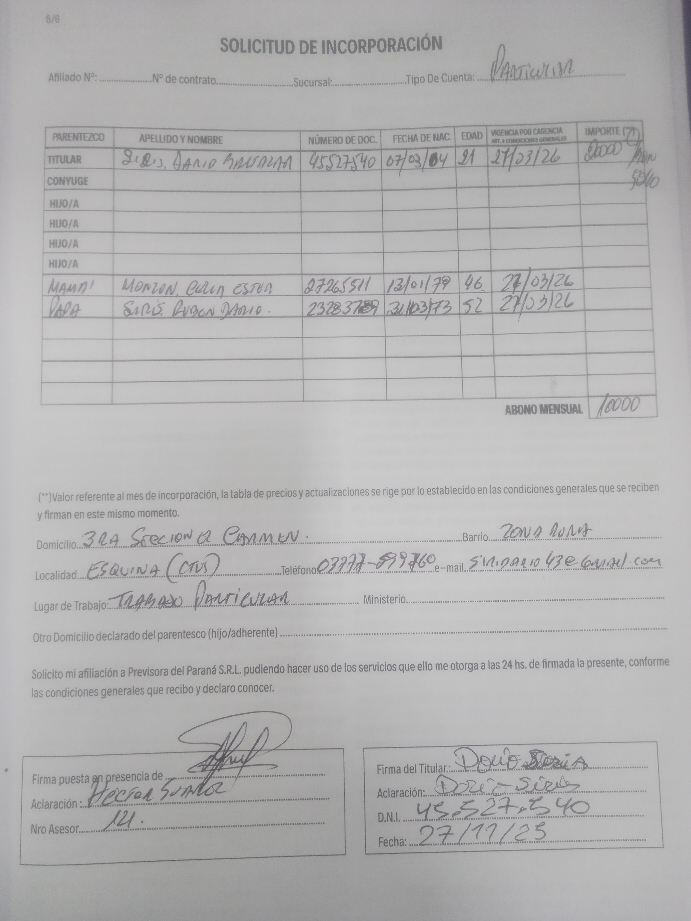 6/6
SOLICITUD DE INCORPORACIÓN
Afiliado Nº: Nº de contrato Sucursal: Tipo De Cuenta: PARTICULAR
PARENTEZCO APELLIDO Y NOMBRE NÚMERO DE DOC. FECHA DE NAC. EDAD VIGENCIA POR CARENCIA IMPORTE (*)
TITULAR DARIO 45527540 07/03/04 21 27/03/26
CONYUGE
HIJO/A
HIJO/A
HIJO/A
HIJO/A
MAMA' MONZON, ESTER 27265511 13/01/79 46 27/03/26
PAPA SIRIS RUBEN DARIO. 31/03/73 52 27/03/26
ABONO MENSUAL 10000
(**)Valor referente al mes de incorporación, la tabla de precios y actualizaciones se rige por lo establecido en las condiciones generales que se reciben
y firman en este mismo momento.
Domicilio 3RA SECCION EL CARMEN. Barrio. ZONA RURAL
Localidad ESQUINA (CTES) Teléfono e-mail.
Lugar de Trabajo: TRABAJO PARTICULAR Ministerio
Otro Domicilio declarado del parentesco (hijo/adherente)
Solicito mi afiliación a Previsora del Paraná S.R.L. pudiendo hacer uso de los servicios que ello me otorga a las 24 hs. de firmada la presente, conforme
las condiciones generales que recibo y declaro conocer.
Firma puesta en presencia de
Aclaración: HECTOR
Nro Asesor 14.
Firma del Titular: Dario
Aclaración: Dario Siris
D.N.I. 45.527.540
Fecha: 27/11/25